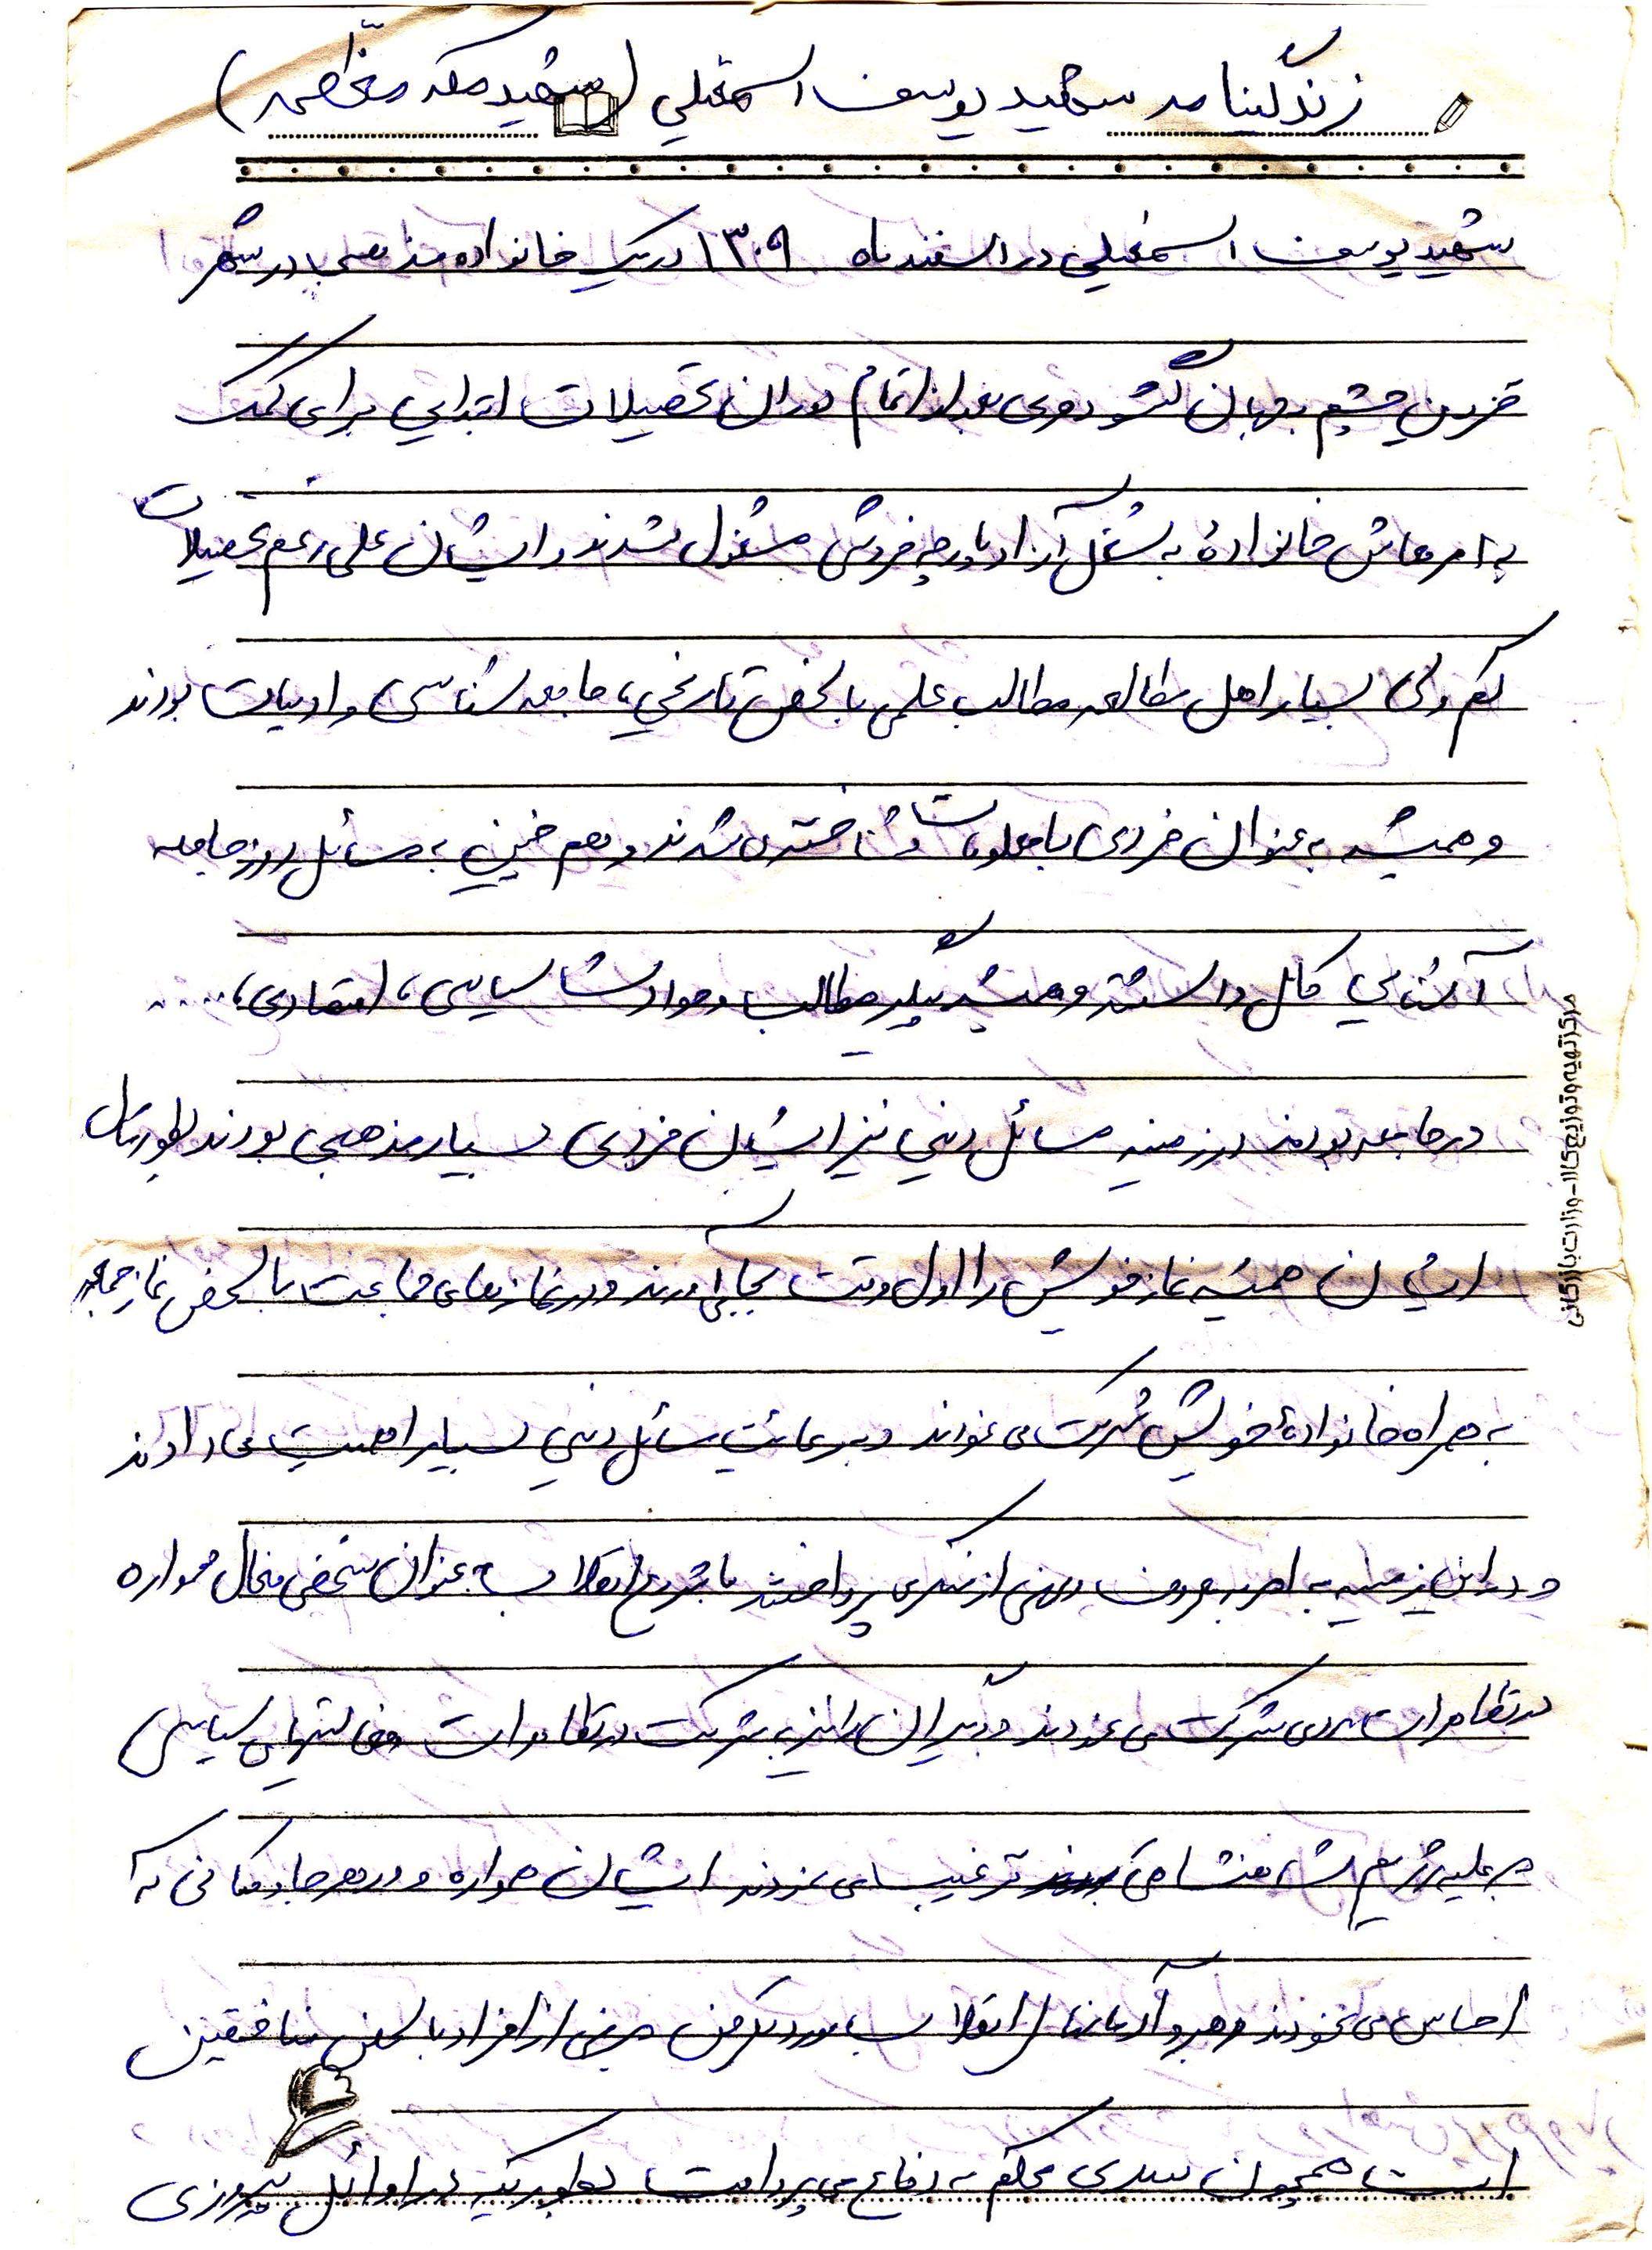 زندگینامه شهید یوسف اسمعیلی (شهید مکه معظمه)
شهید یوسف اسمعیلی در اسفندماه ۱۳۰۹ در یک خانواده مذهبی در شهر
قزوین چشم به جهان گشود وی بعد از اتمام دوران تحصیلات ابتدایی برای کمک
به امر معاش خانواده به شغل آزاد پارچه فروشی مشغول شدند و ایشان علی رغم تحصیلات
کم ولی بسیار اهل مطالعه مطالب علمی بالخص تاریخی، جامعه شناسی و ادبیات بودند
و همیشه به عنوان فردی با معلومات شناخته می شدند و هم چنین به مسائل روز جامعه
آشنایی کامل داشته و همیشه پیگیر مطالب و حوادث سیاسی، اقتصادی، .....
در جامعه بودند در زمینه مسائل دینی نیز ایشان فردی بسیار مذهبی بودند بطور مثال
ایشان همیشه نماز خویش را اول وقت بجای می آوردند و در نمازهای جماعت بالخص نماز جمعه
به همراه خانواده خویش شرکت می نمودند و به رعایت مسائل دینی بسیار اهمیت می دادند
و در این زمینه به امر به معروف و نهی از منکر می پرداختند با شروع انقلاب به عنوان شخصی فعال همواره
در تظاهرات مردمی شرکت می نمودند و دیگران را نیز به شرکت در تظاهرات و فعالیتهای سیاسی
بر علیه رژیم شاهنشاهی ترغیب می نمودند ایشان همواره و در هر جا و مکانی که
احساس می نمودند رهبر و آرمانهای انقلاب مورد برخی از افراد بالخص منافقین
است همچون سدی محکم به دفاع می پرداخت بطوریکه در اوائل پیروزی
مرکز تهیه و توزیع کالا - وزارت بازرگانی